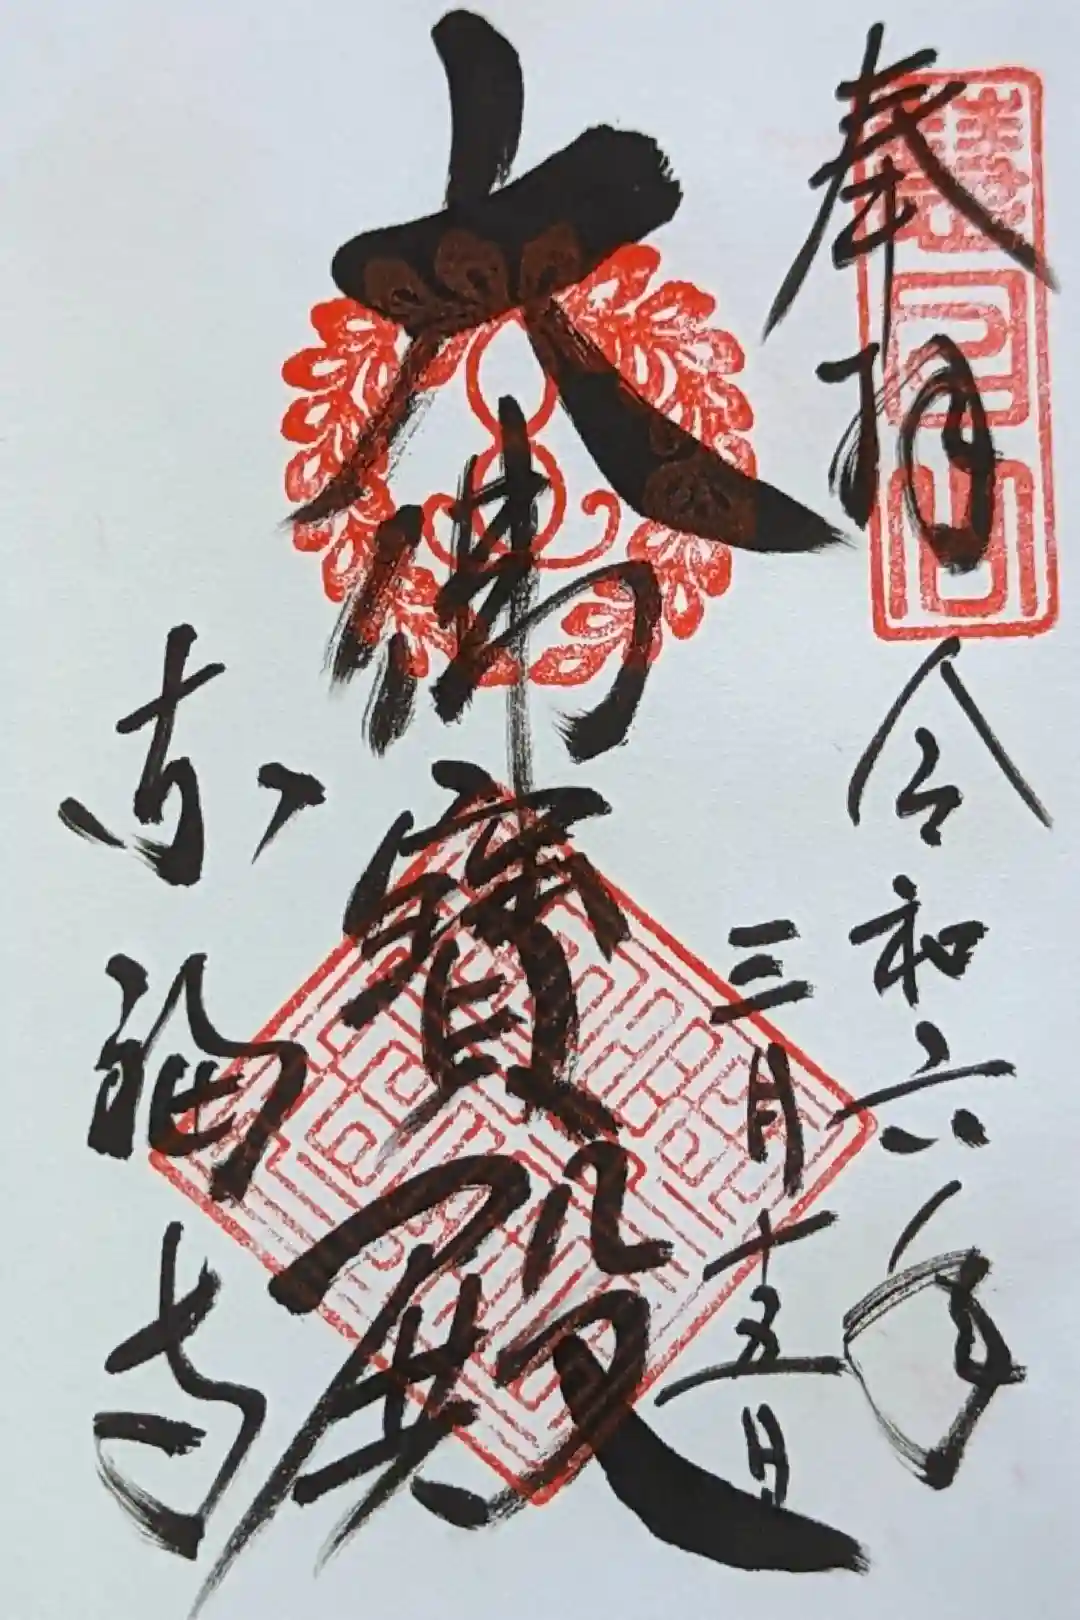 奉拝
令和六年
三月十五日
大佛寶殿
東福寺